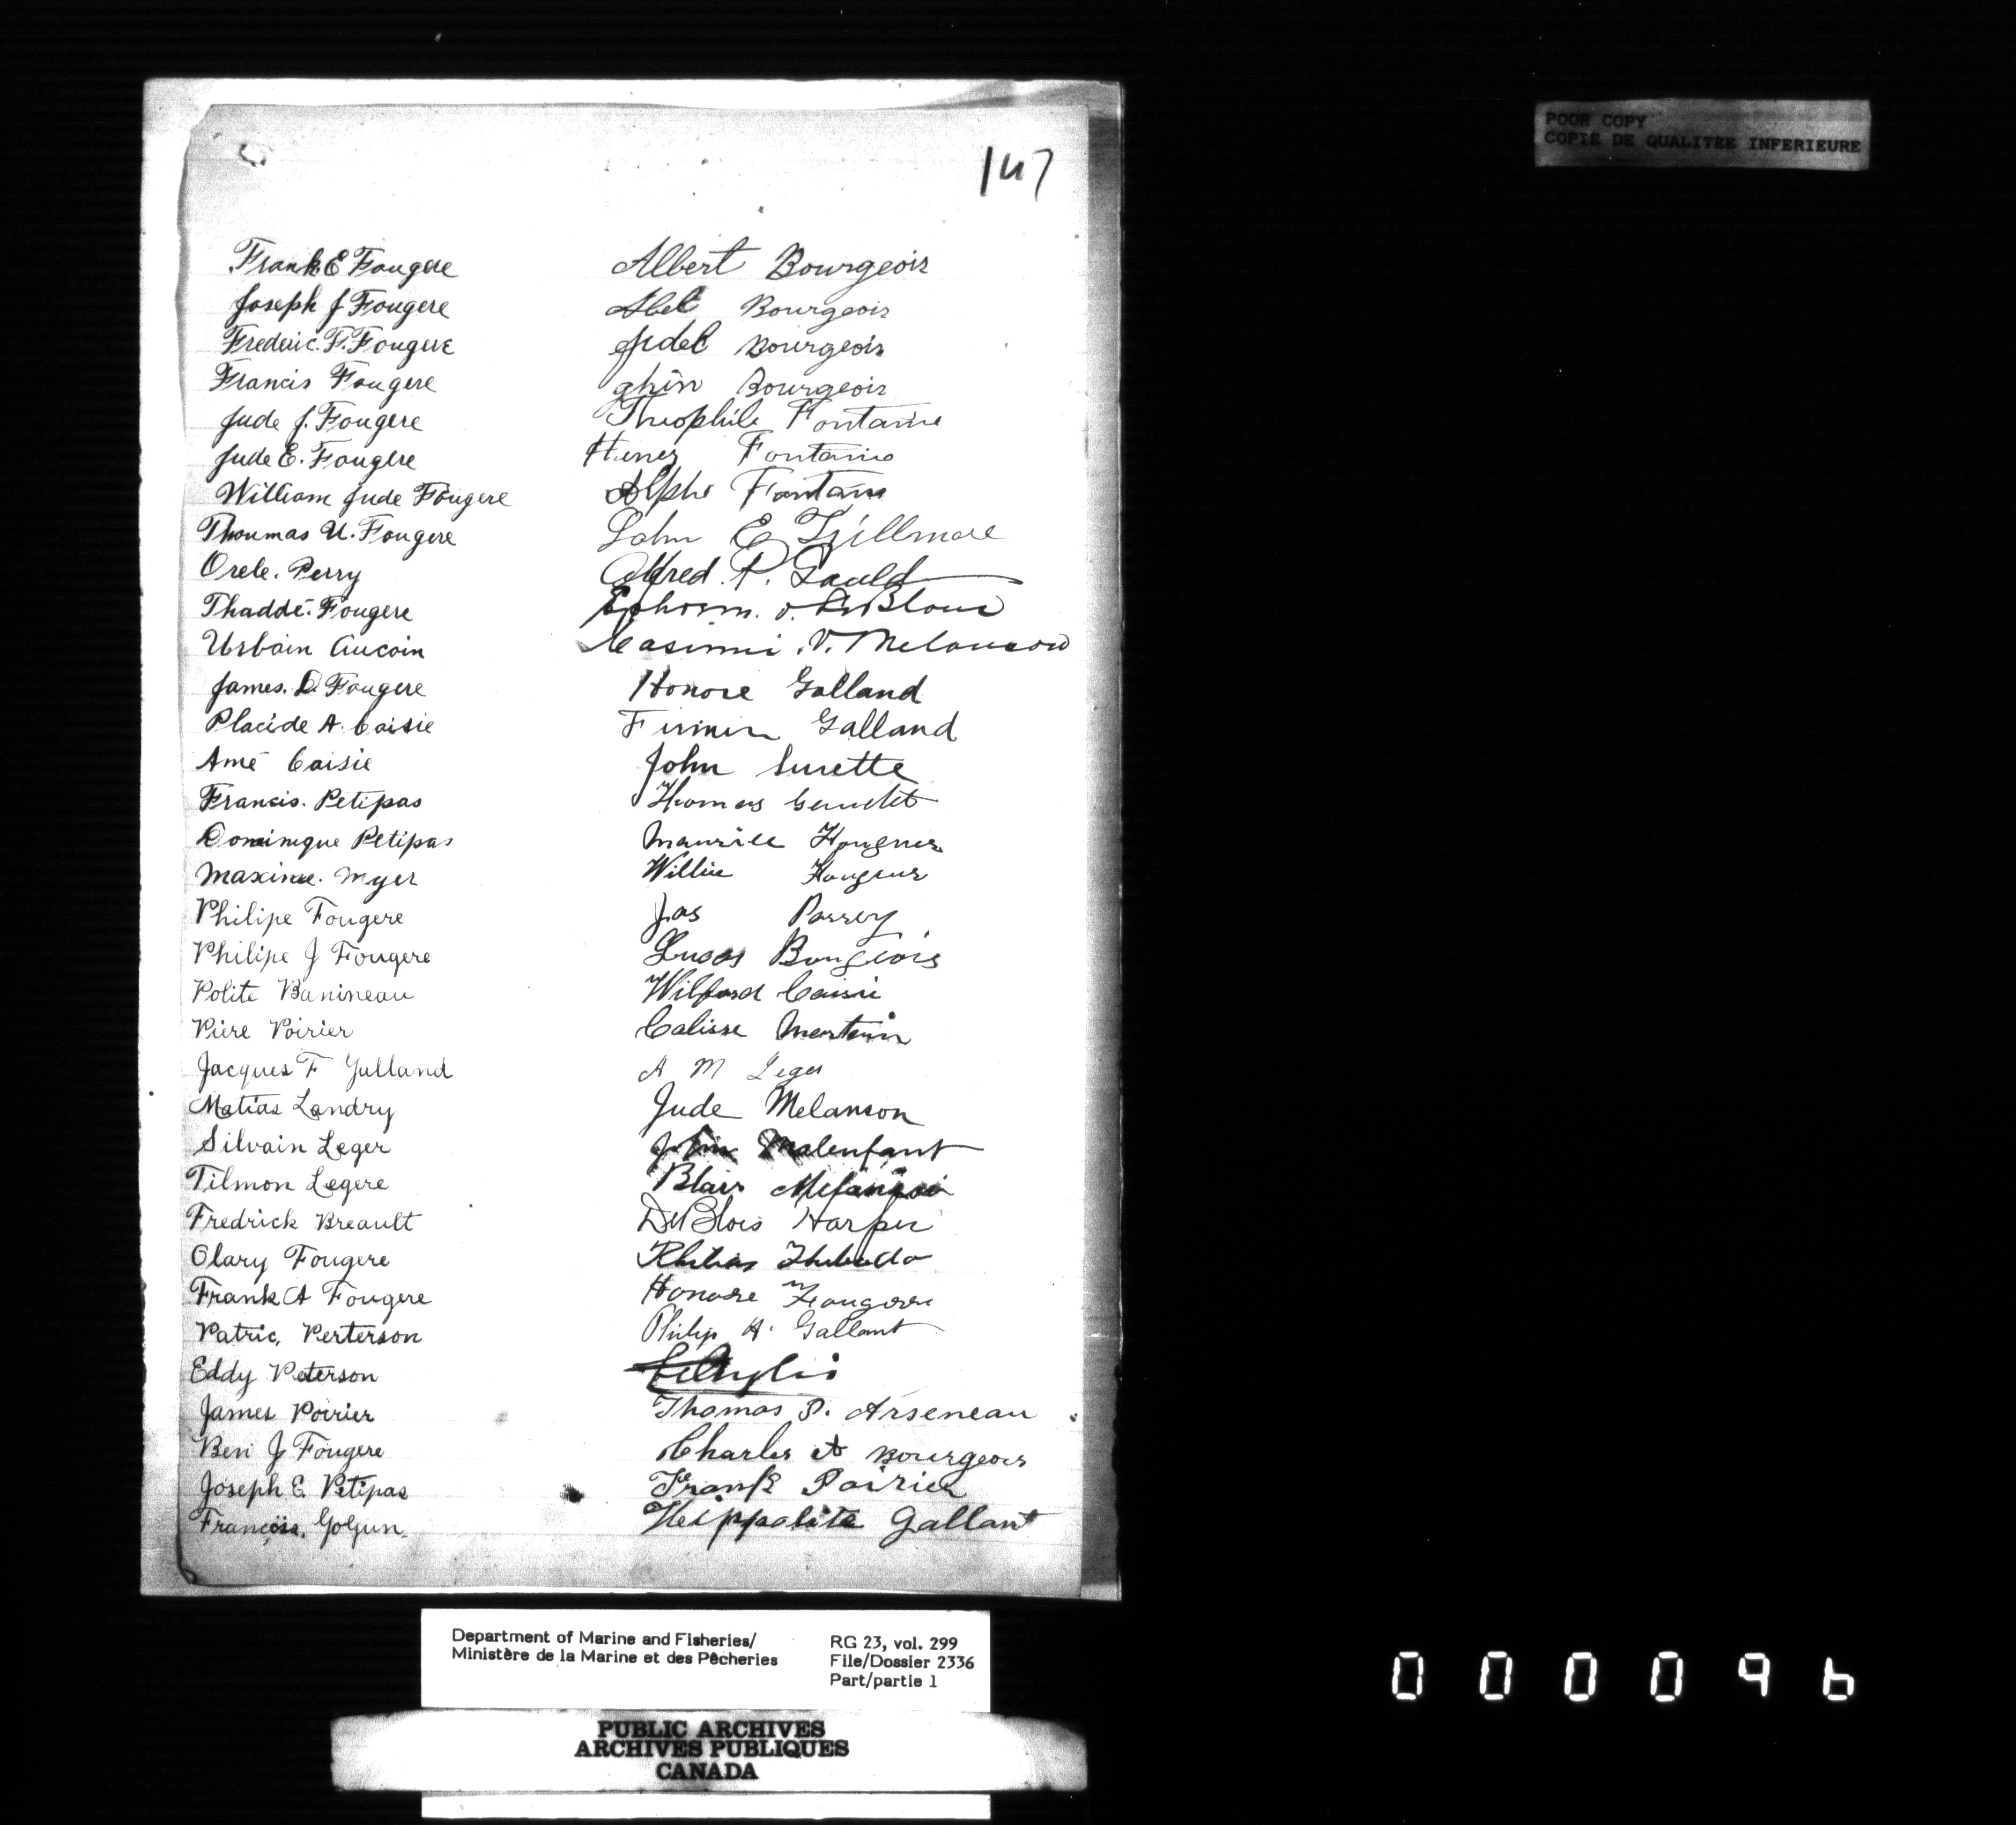 147
POOR COPY
COPIE DE QUALITEE INFERIEURE
Frank E Fougere
Joseph J Fougere
Frederic. F. Fougere
Francis Fougere
Jude J. Fougere
Jude E. Fougere
William Jude Fougere
Thoumas U. Fougere
Orele. Perry
Thaddé. Fougere
Urbain Aucoin
James. D. Fougere
Placide A. Caisie
Amé Caisie
Francis. Petipas
Dominique Petipas
Maxime. Myer
Philipe Fougere
Philipe J Fougere
Polite Banineau
Piere Poirier
Jacques F Gulland
Matias Landry
Silvain Leger
Tilmon Legere
Fredrick Breault
Olary Fougere
Frank A Fougere
Patric, Perterson
Eddy Peterson
James Poirier
Ben J Fougere
Joseph E. Petipas
Albert Bourgeois
Abel Bourgeois
Fidel Bourgeois
Bourgeois
Theophile Fontaine
Fontaine
Fontain
E
Alfred. P. Gauld
LeBlanc
V. Melanson
Honore Galland
Firmin Galland
John Surette
Thomas
Maurice
Willie
Jas Perrey
Lucas
Wilford Caisie
Calisse Martain
A M Leger
Jude Melanson
John Malenfant
Blair
DeBlois Harper
Honore
Philip A. Gallant
Thomas P. Arseneau
Charles A Bourgeois
Frank Poirier
Heippolite Gallant
Department of Marine and Fisheries/
Ministère de la Marine et des Pêcheries
RG 23, vol. 299
File/Dossier 2336
Part/partie 1
PUBLIC ARCHIVES
ARCHIVES PUBLIQUES
CANADA
000096